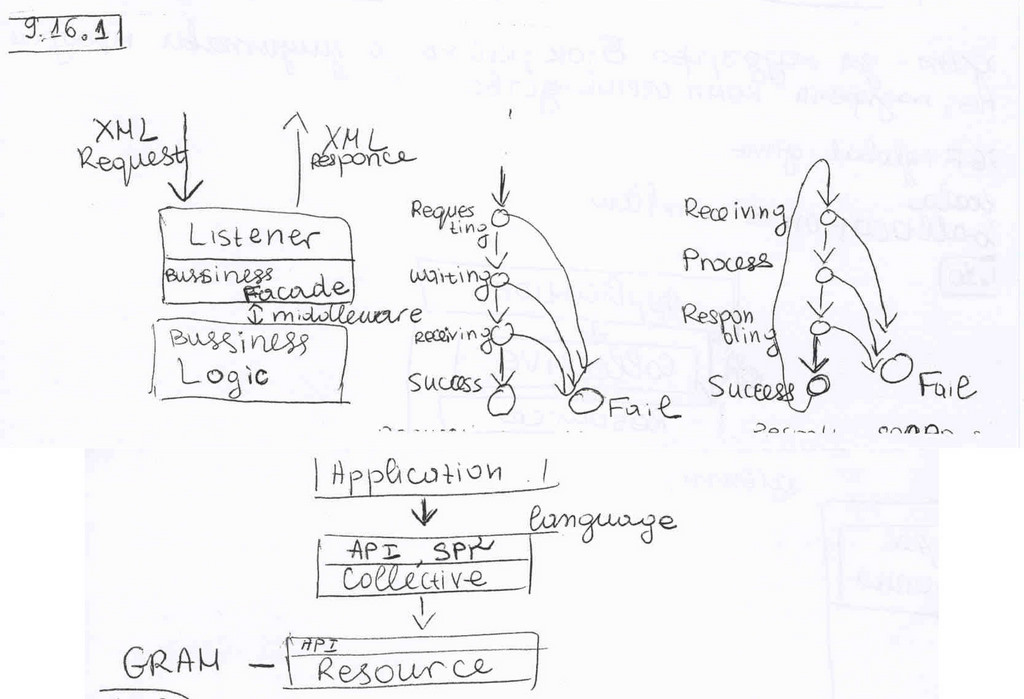 9.16.1
XML
Request
XML
Responce
Listener
Bussiness
Facade
middleware
Bussiness
Logic
Reques
ting
Waiting
Receiving
Success
Fail
Receiving
Process
Respon
Success
Fail
Application
language
API,
Collective
API
GRAM - Resource